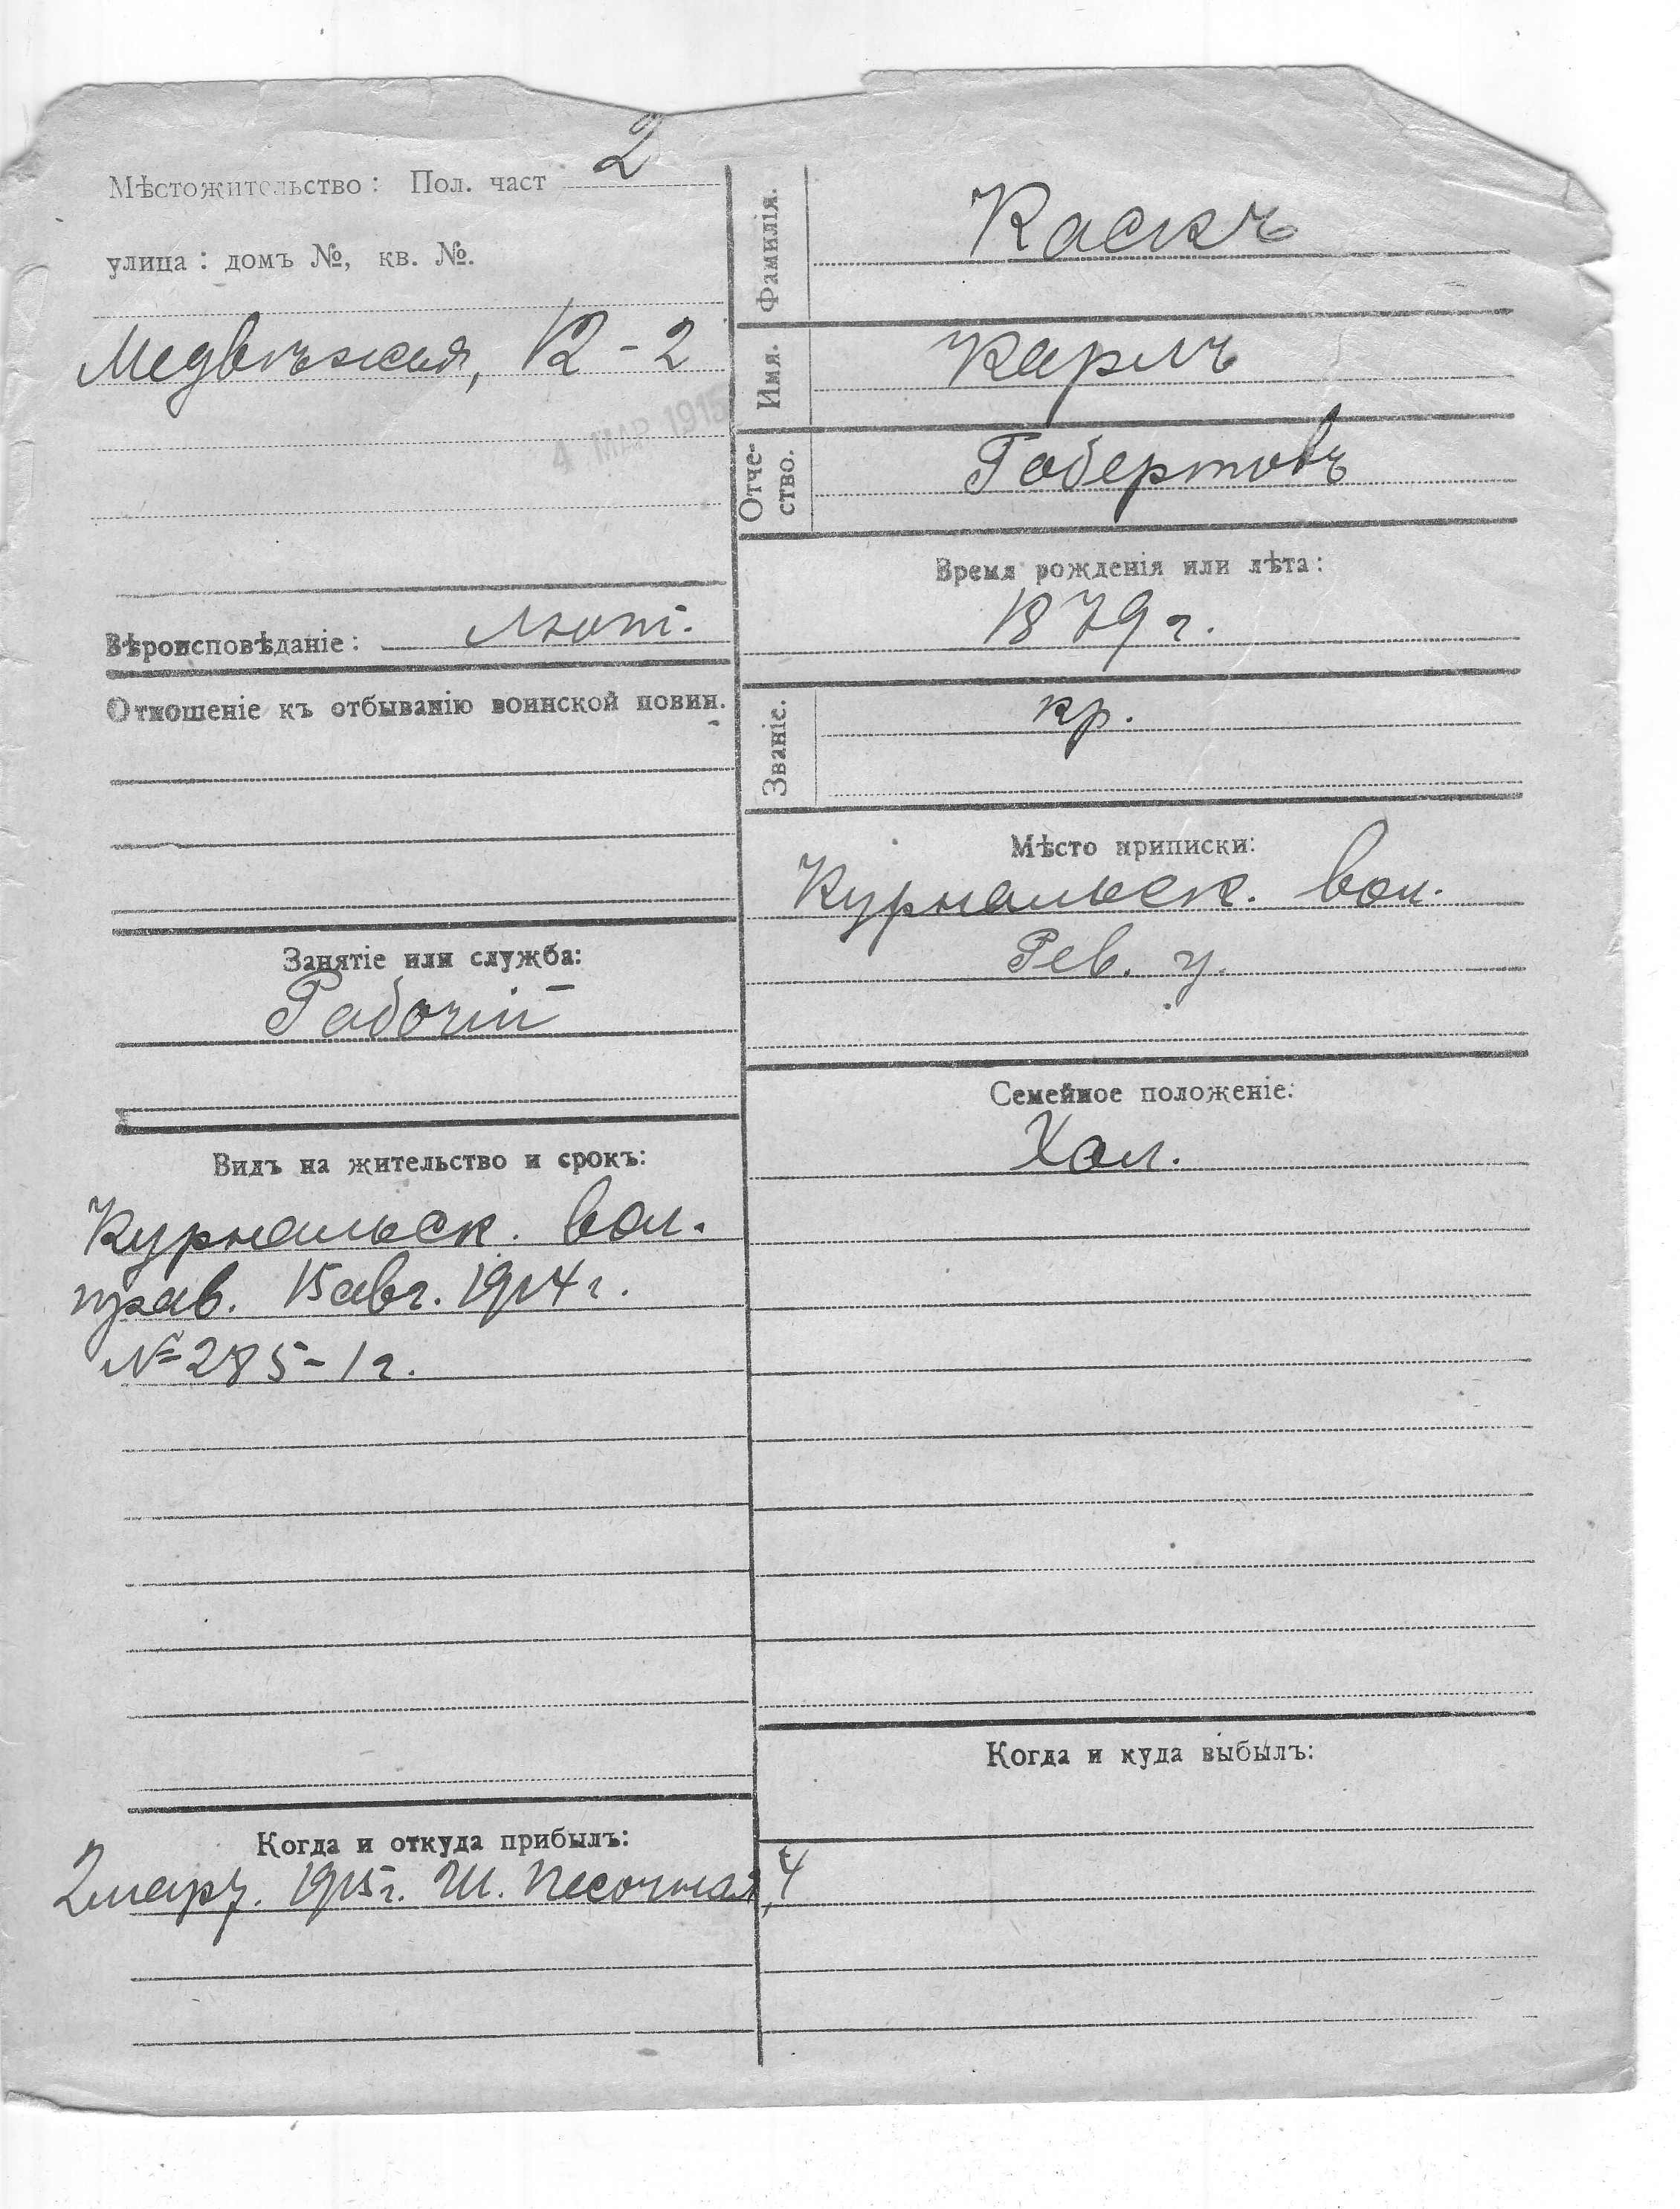 Мѣстожительство: Пол. част 2
улица: домъ №, кв. №.
Медвѣжья, 12-2
4 МАР. 1915
Вѣроисповѣданіе: Лют.
Отношеніе къ отбыванію воинской повин.
Занятіе или служба:
Рабочій
Видъ на жительство и срокъ:
Курнальск. вол.
прав. 15 авг. 1914 г.
№ 285-1 г.
Когда и откуда прибылъ:
2 мар. 1915 г. Ш. Песочная, 4
Фамилія. Каскъ
Имя. Карлъ
Отче-
ство. Робертовъ
Время рожденія или лѣта:
1879 г.
Званіе. кр.
Мѣсто приписки:
Курнальск. вол.
Рев. у.
Семейное положеніе:
Хол.
Когда и куда выбылъ: